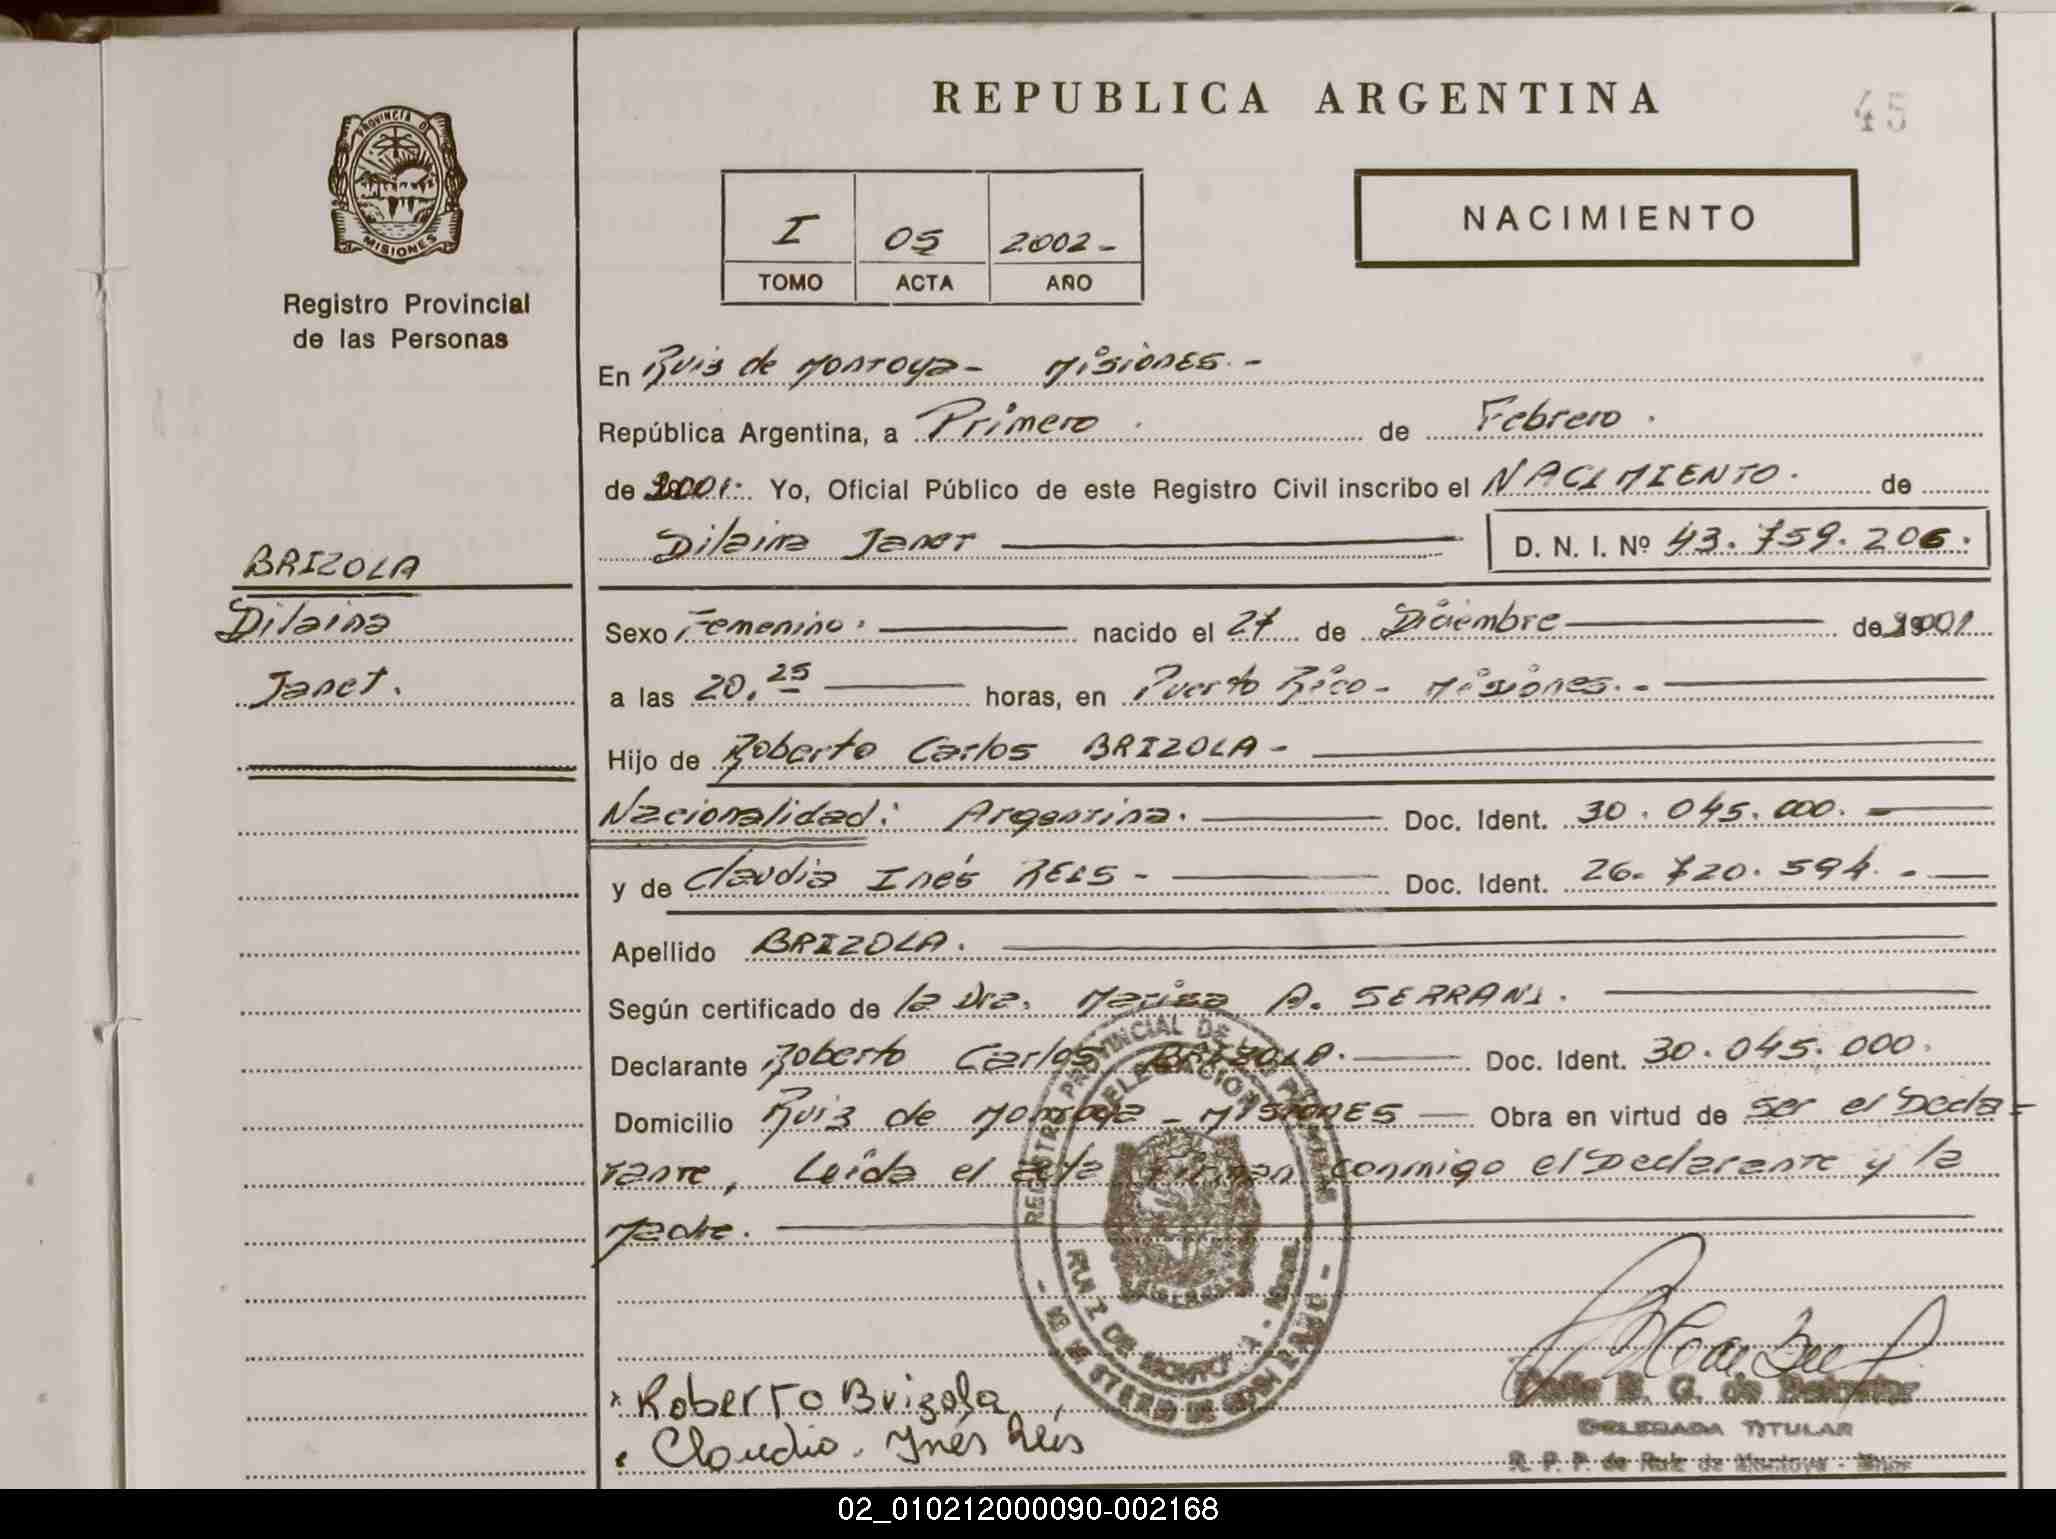 REPUBLICA ARGENTINA
45
PROVINCIA DE
MISIONES
Registro Provincial
de las Personas
I 05 2002-
TOMO ACTA AÑO
NACIMIENTO
En Ruiz de Montoya - Misiones. -
República Argentina, a Primero. de Febrero.
de 2001. Yo, Oficial Público de este Registro Civil inscribo el NACIMIENTO. de
Dilaina Janet D. N. I. Nº 43.759.206.
BRIZOLA
Dilaina
Janet.
Sexo Femenino. nacido el 27 de Diciembre de 2001
a las 20.25 horas, en Puerto Rico - Misiones. -
Hijo de Roberto Carlos BRIZOLA -
Nacionalidad: Argentina. Doc. Ident. 30.045.000. -
y de Claudia Inés REIS - Doc. Ident. 26.720.594. -
Apellido BRIZOLA.
Según certificado de la Dra. Marisa A. SERRANI.
Declarante Roberto Carlos BRIZOLA. Doc. Ident. 30.045.000.
Domicilio Ruiz de Montoya - MISIONES Obra en virtud de ser el Decla-
rante, Leída el acta firman conmigo el Declarante y la
Madre.
REGISTRO PROVINCIAL DE LAS PERSONAS
DELEGACION
RUIZ DE MONTOYA - Mnes.
- MINISTERIO DE GOBIERNO -
x Roberto Brizola
Claudia. Ynés Reis
DELEGADA TITULAR
R. P. P. de Ruiz de Montoya - Mnes
02_010212000090-002168